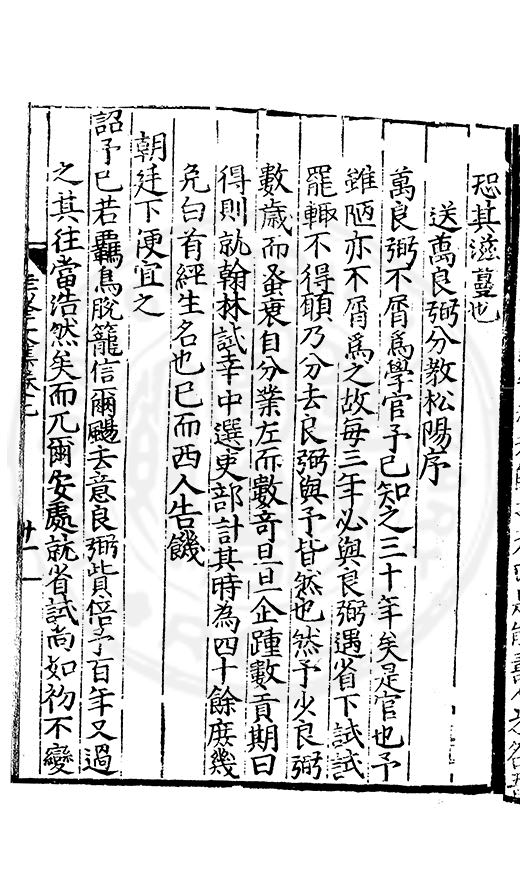 恐其滋蔓也
送萬良弼分教松陽序
萬良弼不屑爲學官予已知之三十年矣是官也予
雖陋亦不屑爲之故每三年必與良弼遇省下試試
罷輙不得頠乃分去良弼與予皆然也然予少良弼
數歲而蚤衰自分業左而數竒旦旦企踵數貢期曰
得則就翰林試幸中選吏部計其時為四十餘庻幾
免白首經生名也巳而西人告饑
朝廷下便宜之
詔予巳若覊鳥脫籠信爾颺去意良弼貲倍予百年又過
之其往當浩然矣而兀爾安處就省試尚如初不變